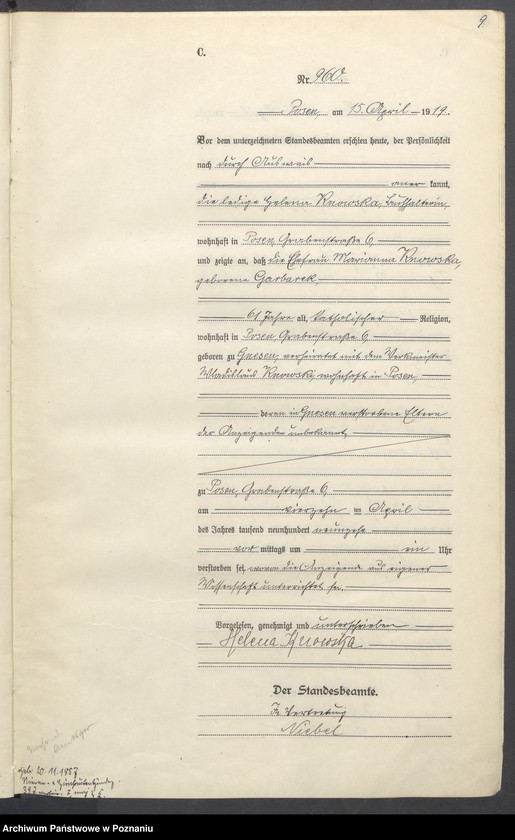 9.
C.
Nr. 960.
Posen, am 15. April 1919.
Vor dem unterzeichneten Standesbeamten erschien heute, der Persönlichkeit
nach durch Ausweis
aner kannt,
die ledige Helena Knowska, Buchhalterin,
wohnhaft in Posen, Grabenstraße 6,
und zeigte an, daß die Ehefrau Marianna Knowska,
geborene Garbarek
61 Jahre alt, katholischer Religion,
wohnhaft in Posen, Grabenstraße 6,
geboren zu Gnesen, verheiratet mit dem Werkmeister
Wladislaus Knowski, wohnhaft in Posen,
deren in Gnesen verstorbene Eltern
der Anzeigenden unbekannt,
zu Posen, Grabenstraße 6,
am vierzehn ten April
des Jahres tausend neunhundert neunzehn
vor mittags um ein Uhr
verstorben sei, wovon die Anzeigende aus eigener
Wissenschaft unterrichtet sei.
Vorgelesen, genehmigt und unterschrieben
Helena Knowska
Der Standesbeamte.
In Vertretung
Niebel
geb. 20.11.1857
Archiwum Państwowe w Poznaniu